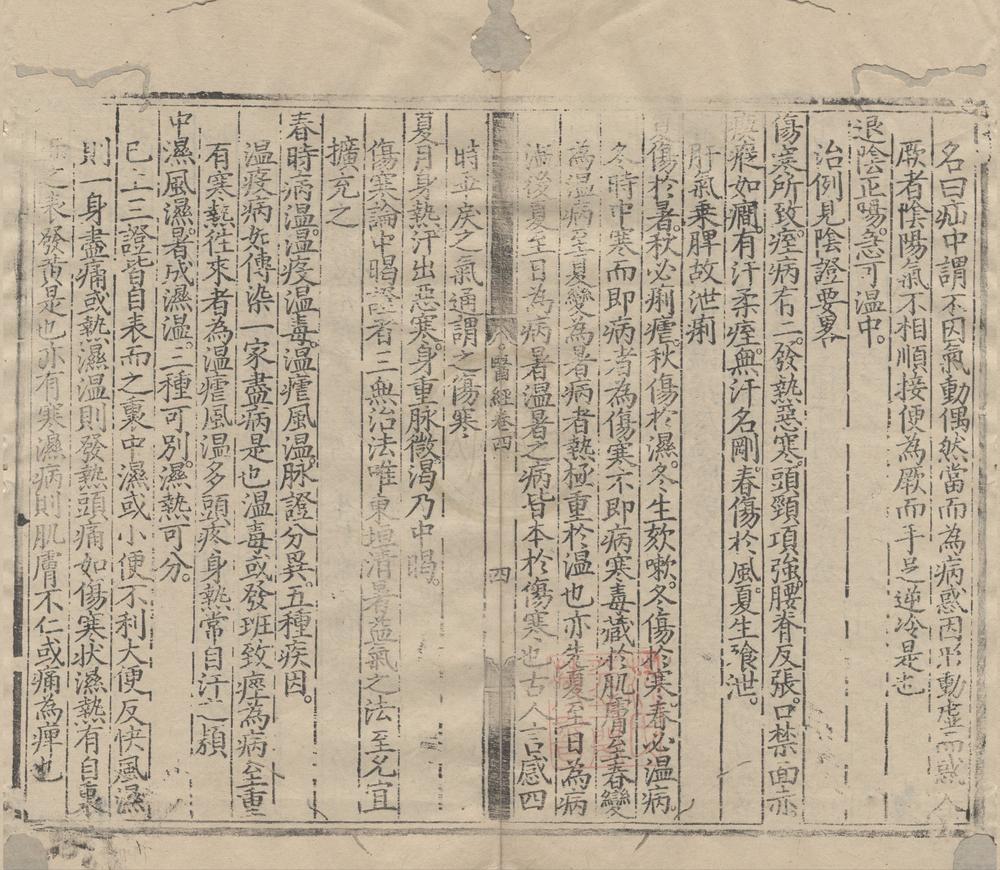 名曰疝中謂不因氣動偶然當而為病惑因形動虛而惑人
厥者陰陽氣不相順接便為厥而手足逆冷是也
退陰正陽急可溫中
治例見陰證要畧
傷寒所致痓病有二發熱惡寒頭頸項強腰脊反張口禁面赤
瘈瘲如癎有汗柔痓無汗名剛春傷於風夏生飱泄
肝氣乗脾故泄痢
夏傷於暑秋必痢瘧秋傷於濕冬生欬嗽冬傷於寒春必溫病
冬時中寒而即病者為傷寒不即病寒毒藏於肌膚至春變
為溫病至夏變為暑病者熱極重於溫也亦先夏至日為病
溫後夏至日為病暑溫暑之病皆本於傷寒也古人言感四
醫經卷四 四
時正戾之氣通謂之傷寒
夏月身熱汗出惡寒身重脉微渴乃中暍
傷寒論中暍證者三無治法唯東垣清暑益氣之法至尤宜
擴充之
春時病溫溫疫溫毒溫瘧風溫脉證分異五種疾因
溫疫病如傳染一家盡病是也溫毒或發班致痙為病至重
有寒熱往來者為溫瘧風溫多頭疼身熱常自汗之類
中濕風濕暑成濕溫三種可別濕熱可分
已上三證皆自表而之裏中濕或小便不利大便反快風濕
則一身盡痛或熱濕溫則發熱頭痛如傷寒狀濕熱有自裏
之表發黃是也亦有寒濕病則肌膚不仁或痛為痺也